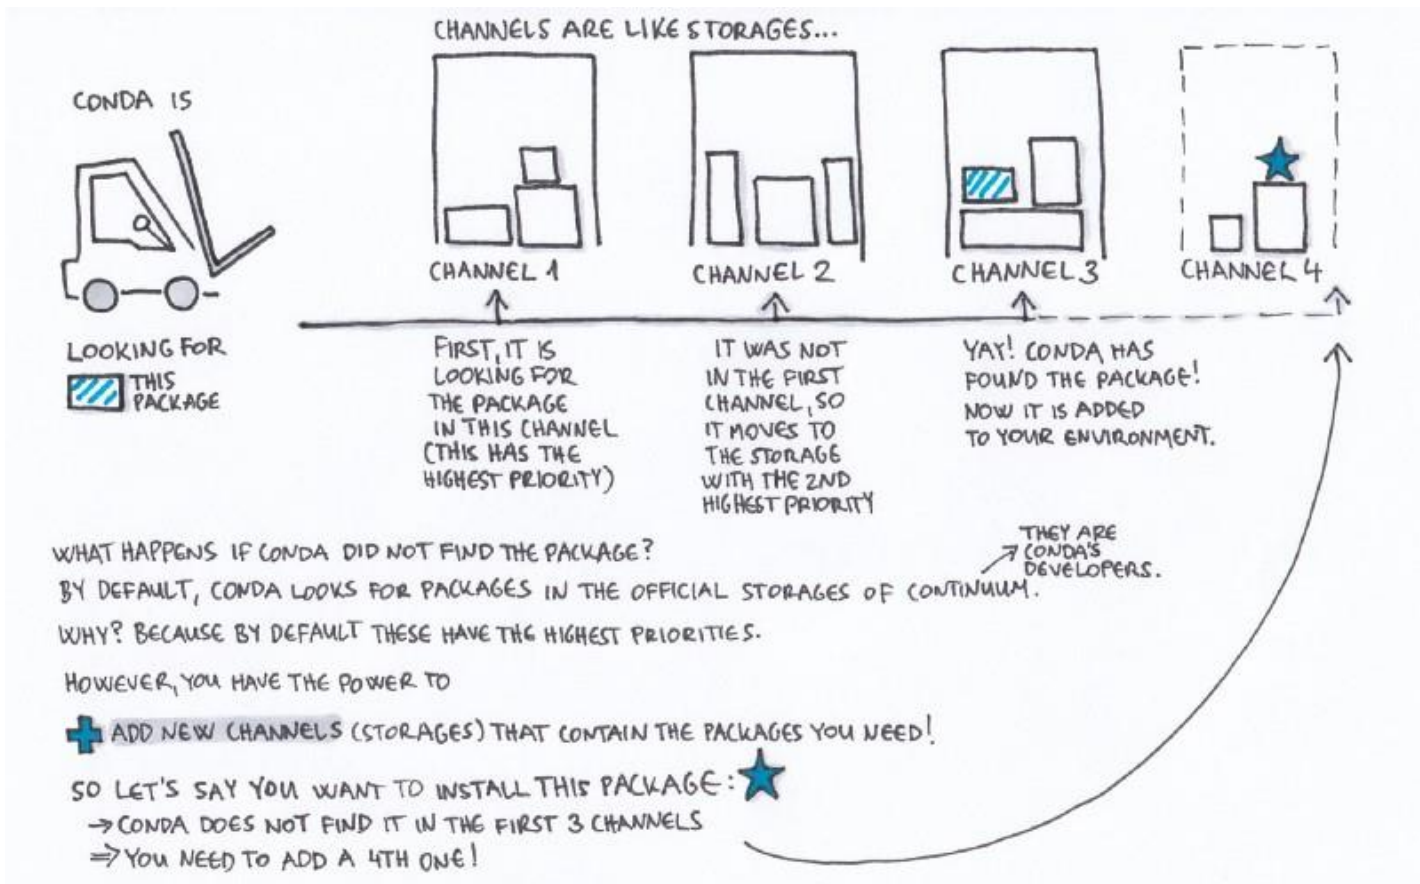 CHANNELS ARE LIKE STORAGES...
CONDA IS
LOOKING FOR
THIS
PACKAGE
CHANNEL 1
CHANNEL 2
CHANNEL 3
CHANNEL 4
FIRST, IT IS
LOOKING FOR
THE PACKAGE
IN THIS CHANNEL
(THIS HAS THE
HIGHEST PRIORITY)
IT WAS NOT
IN THE FIRST
CHANNEL, SO
IT MOVES TO
THE STORAGE
WITH THE 2ND
HIGHEST PRIORITY
YAY! CONDA HAS
FOUND THE PACKAGE!
NOW IT IS ADDED
TO YOUR ENVIRONMENT.
WHAT HAPPENS IF CONDA DID NOT FIND THE PACKAGE?
BY DEFAULT, CONDA LOOKS FOR PACKAGES IN THE OFFICIAL STORAGES OF CONTINUUM.
THEY ARE
CONDA'S
DEVELOPERS.
WHY? BECAUSE BY DEFAULT THESE HAVE THE HIGHEST PRIORITIES.
HOWEVER, YOU HAVE THE POWER TO
ADD NEW CHANNELS (STORAGES) THAT CONTAIN THE PACKAGES YOU NEED!
SO LET'S SAY YOU WANT TO INSTALL THIS PACKAGE:
→ CONDA DOES NOT FIND IT IN THE FIRST 3 CHANNELS
⇒ YOU NEED TO ADD A 4TH ONE!